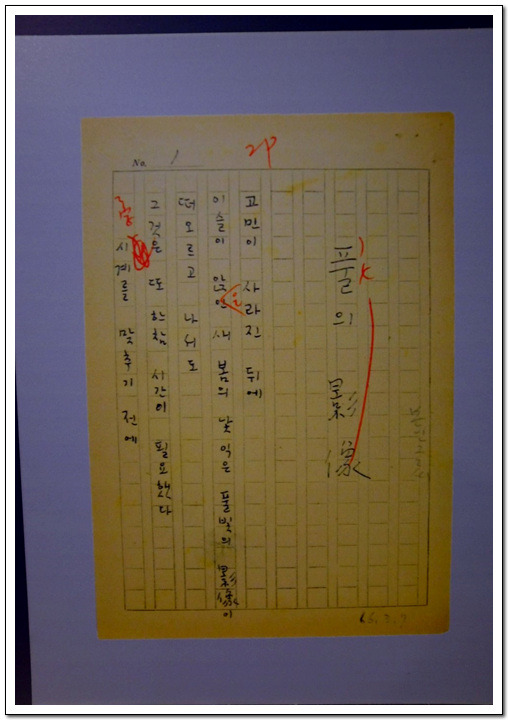 No. 1
2P
풀의 影像
고민이 사라진 뒤에
이슬이 앉은 새 봄의 낯 익은 풀빛의 影像이
떠오르고 나서도
그것은 또 한참 시간이 필요했다
시계를 맞추기 전에